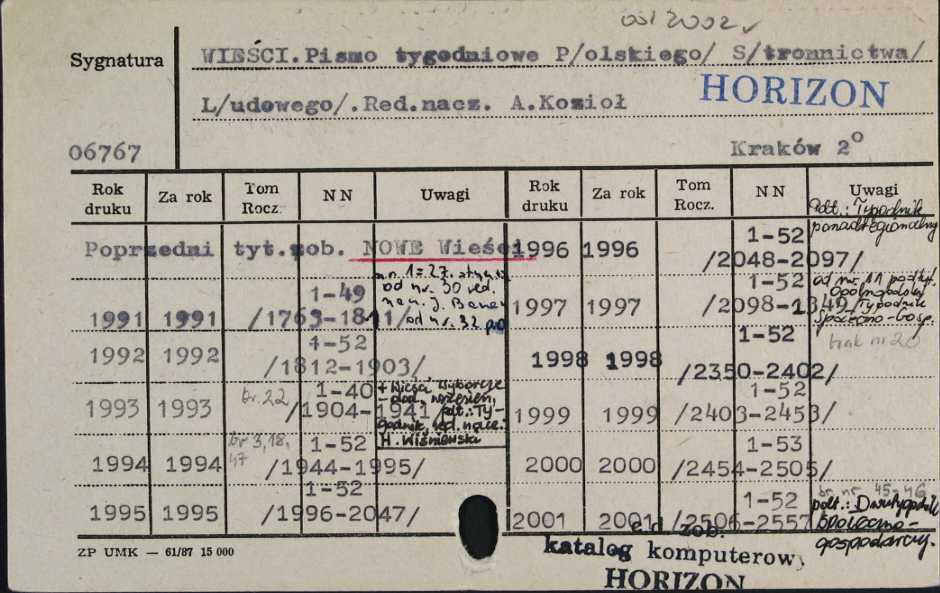 od 2002 r
Sygnatura
WIEŚCI.Pismo tygodniowe P/olskiego/ S/tronnictwa/
L/udowego/.Red.nacz. A.Kozioł
HORIZON
06767
Kraków 2°
Rok druku Za rok Tom Rocz. N N Uwagi Rok druku Za rok Tom Rocz. N N Uwagi
Poprzedni tyt.zob. NOWE Wieści
1991 1991 1-49 /1763-1811/
od nr. 30 red. nacz. J. od nr. 32
1992 1992 1-52 /1812-1903/
1993 1993 br. 22 1-40 /1904-1941/
+ Wieści Wyborcze - dod., wrzesień, pdt.: Tygodnik, red. nacz.: H. Wiśniewska
1994 1994 br 3,18, 47 1-52 /1944-1995/
1995 1995 1-52 /1996-2047/
1996 1996 1-52 /2048-2097/ Pdt.: Tygodnik ponadregionalny
1997 1997 1-52 /2098-2349/ od nr 11 podtyt. Ogólnopolski Tygodnik Społeczno-Gosp.
1998 1998 1-52 /2350-2402/ brak nr 20
1999 1999 1-52 /2403-2453/
2000 2000 1-53 /2454-2505/
2001 2001 1-52 /2506-2557 br. nr 45-46 pdt.: Dwutygodnik społeczno-gospodarczy.
ZP UMK — 61/87 15 000
c.d. zob.
katalog komputerowy
HORIZON